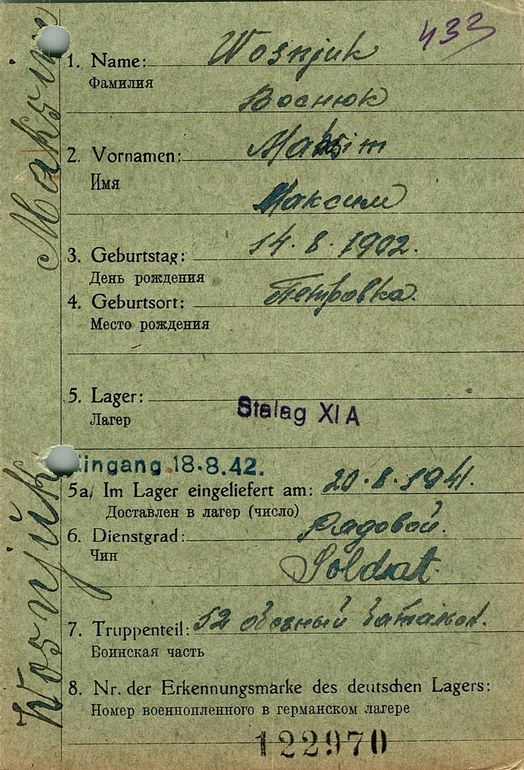 433
1. Name: Wosnjuk
Фамилия
Воснюк
2. Vornamen: Maksim
Имя
Максим
3. Geburtstag: 14.8.1902.
День рождения
4. Geburtsort: Петровка.
Место рождения
5. Lager: Stalag XI A
Лагер
Eingang 18.8.42.
5a. Im Lager eingeliefert am: 20.8.1941.
Доставлен в лагер (число)
6. Dienstgrad: Рядовой.
Чин
Soldat.
7. Truppenteil: 12
Воинская часть
8. Nr. der Erkennungsmarke des deutschen Lagers:
Номер военнопленного в германском лагере
122970
Wosnjuk Maksim